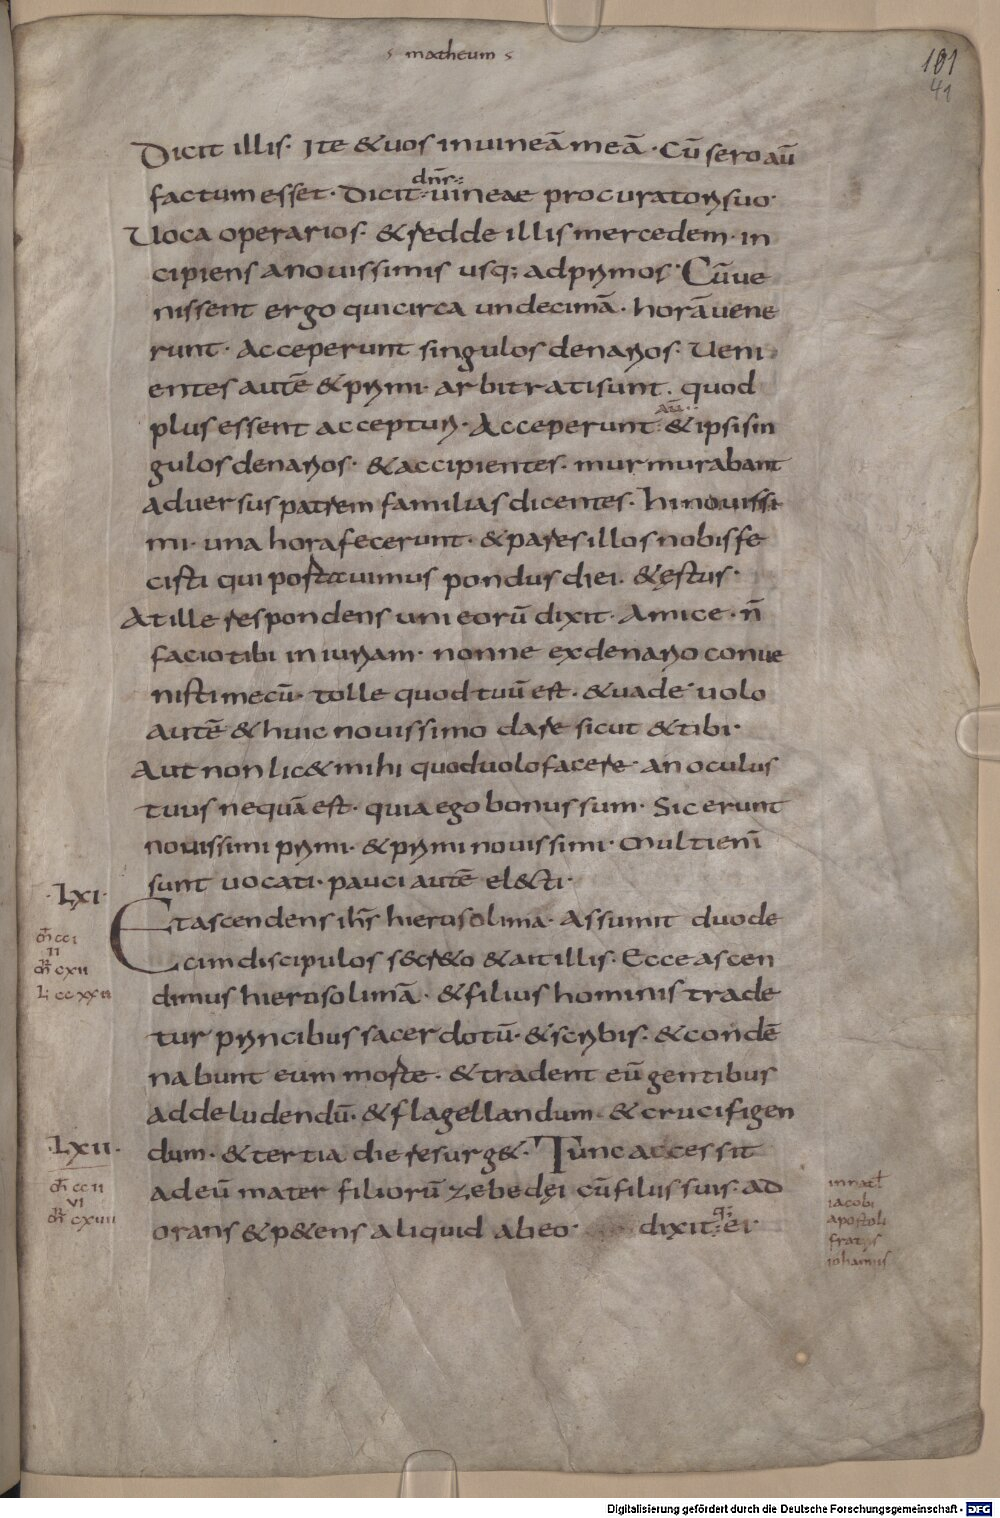 matheum
101
41
Dicit illis· Ite &uos inuineā meā· Cū sero aū
factum esset· Dicit dn̄s uineae procuratori suo·
Uoca operarios· &redde illis mercedem· in
cipiens anouissimis usq; adprimos· Cū ue
nissent ergo quicirca undecimā· horā uene
runt· Acceperunt singulos denarios· Ueni
entes autē &primi· arbitrati sunt· quod
plus essent accepturi· Acceperunt aū &ipsi sin
gulos denarios· &accipientes· murmurabant
aduersus patrem familias dicentes· hi nouissi
mi· una hora fecerunt· &pares illos nobis fe
cisti qui portauimus pondus diei· &ęstus·
At ille respondens uni eorū dixit· Amice· n̄
facio tibi iniuriam· nonne exdenario conue
nisti mecū· tolle quod tuū est· &uade· uolo
autē &huic nouissimo dare sicut &tibi·
Aut non lic& mihi quoduolo facere· an oculus
tuus nequā est· quia ego bonus sum· Sic erunt
nouissimi primi· &primi nouissimi· Multi enī
sunt uocati· pauci autē el&cti·
·LXI·
m̄ cci
II
m̄r cxii
L ccxxii
Et ascendens ih̄s hierosolima· Assumit duode
cim discipulos s&cr&o &ait illis· Ecce ascen
dimus hierosolimā· &filius hominis trade
tur principibus sacerdotū· &scribis· &condē
nabunt eum morte· &tradent eū gentibus
addeludendū· &flagellandum· &crucifigen
dum· &tertia die resurg&· Tunc accessit
·LXII·
m̄ ccii
VI
m̄r cxiii
adeū mater filiorū zebedęi cū filiis suis· ad
orans &p&ens aliquid ab eo· dixitq; ei·
iacobi
apostoli
fratris
iohannis
Digitalisierung gefördert durch die Deutsche Forschungsgemeinschaft - DFG